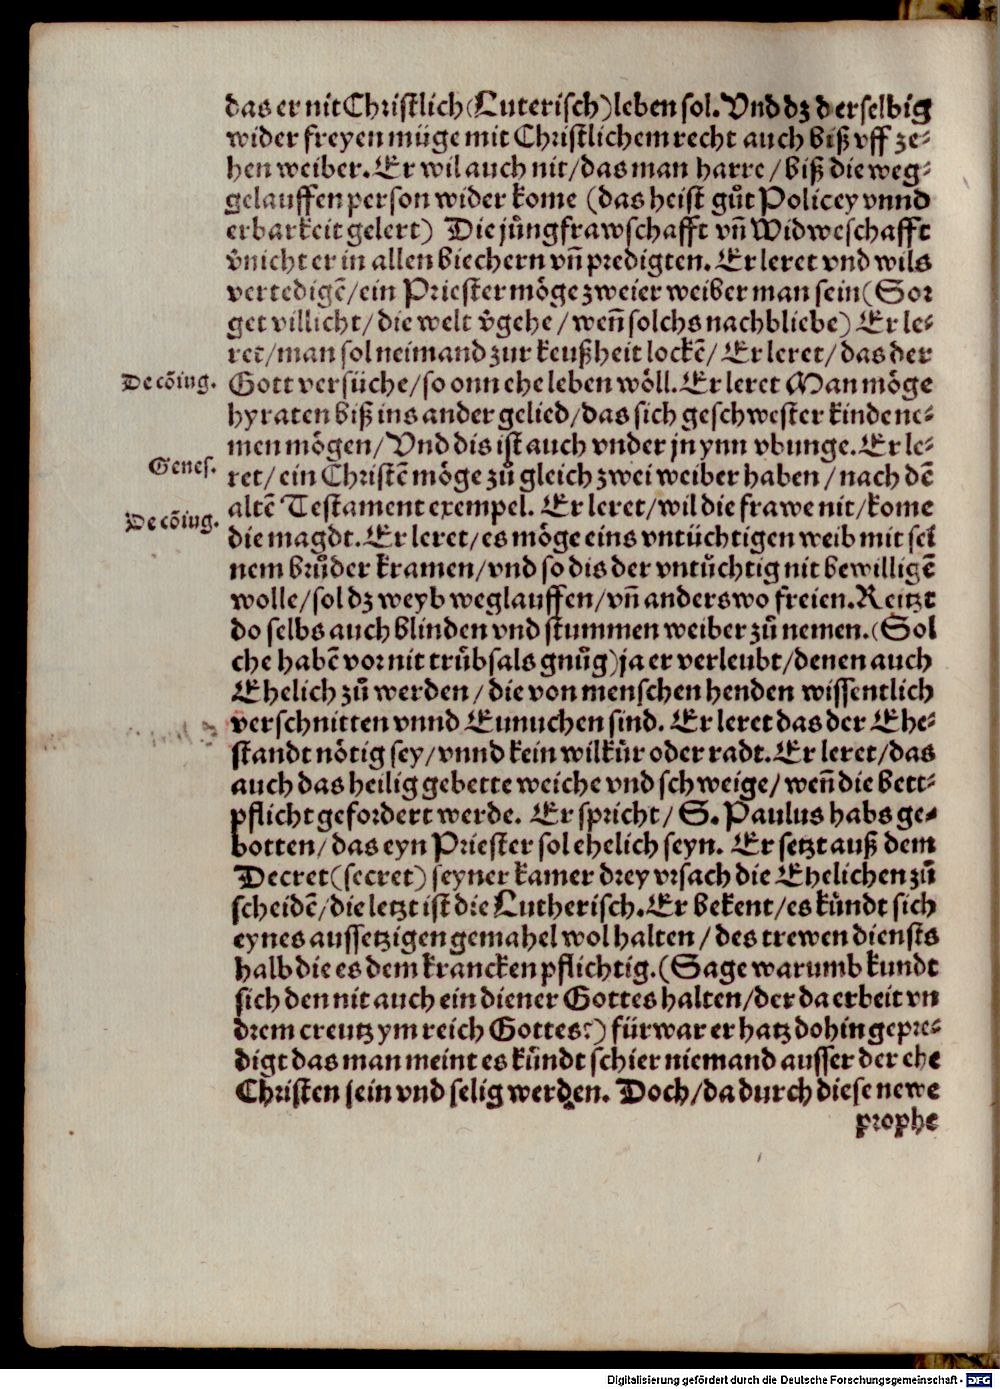 das er nit Christlich (Luterisch) leben sol. Vnd dz derselbig
wider freyen müge mit Christlichem recht auch biß vff ze-
hen weiber. Er wil auch nit / das man harre / biß die weg-
gelauffen person wider kome (das heist gůt Policey vnnd
erbarkeit gelert) Die jůngfrawschafft vn̄ Widweschafft
v̂nicht er in allen biechern vn̄ predigten. Er leret vnd wils
vertedigē / ein Priester möge zweier weiber man sein (Sor
get villicht / die welt v̂gehe / wen̄ solchs nachbliebe) Er le-
ret / man sol neimand zur keußheit lockē / Er leret / das der
De cōiug. Gott versüche / so onn ehe leben wöll. Er leret Man möge
hyraten biß ins ander gelied / das sich geschwester kinde ne-
men mögen / Vnd dis ist auch vnder jn ynn vbunge. Er le-
Genes. ret / ein Christē möge zů gleich zwei weiber haben / nach dē
altē Testament exempel. Er leret / wil die frawe nit / kome
De cōiug. die magdt. Er leret / es möge eins vntüchtigen weib mit sei
nem brůder kramen / vnd so dis der vntüchtig nit bewilligē
wolle / sol dz weyb weglauffen / vn̄ anderswo freien. Reitzt
do selbs auch blinden vnd stummen weiber zů nemen. (Sol
che habē vor nit trůbsals gnůg) ja er verleubt / denen auch
Ehelich zů werden / die von menschen henden wissentlich
verschnitten vnnd Eunuchen sind. Er leret das der Ehe-
standt nötig sey / vnnd kein wilkůr oder radt. Er leret / das
auch das heilig gebette weiche vnd schweige / wen̄ die bett-
pflicht gefordert werde. Er spricht / S. Paulus habs ge-
botten / das eyn Priester sol ehelich seyn. Er setzt auß dem
Decret (secret) seyner kamer drey vrsach die Ehelichen zů
scheidē / die letzt ist die Lutherisch. Er bekent / es kůndt sich
eynes aussetzigen gemahel wol halten / des trewen diensts
halb die es dem krancken pflichtig. (Sage warumb kundt
sich den nit auch ein diener Gottes halten / der da erbeit vn
drem creutz ym reich Gottes?) fürwar er hatz dohin gepre-
digt das man meint es kůndt schier niemand ausser der ehe
Christen sein vnd selig werden. Doch / da durch diese newe
prophe
Digitalisierung gefördert durch die Deutsche Forschungsgemeinschaft - DFG